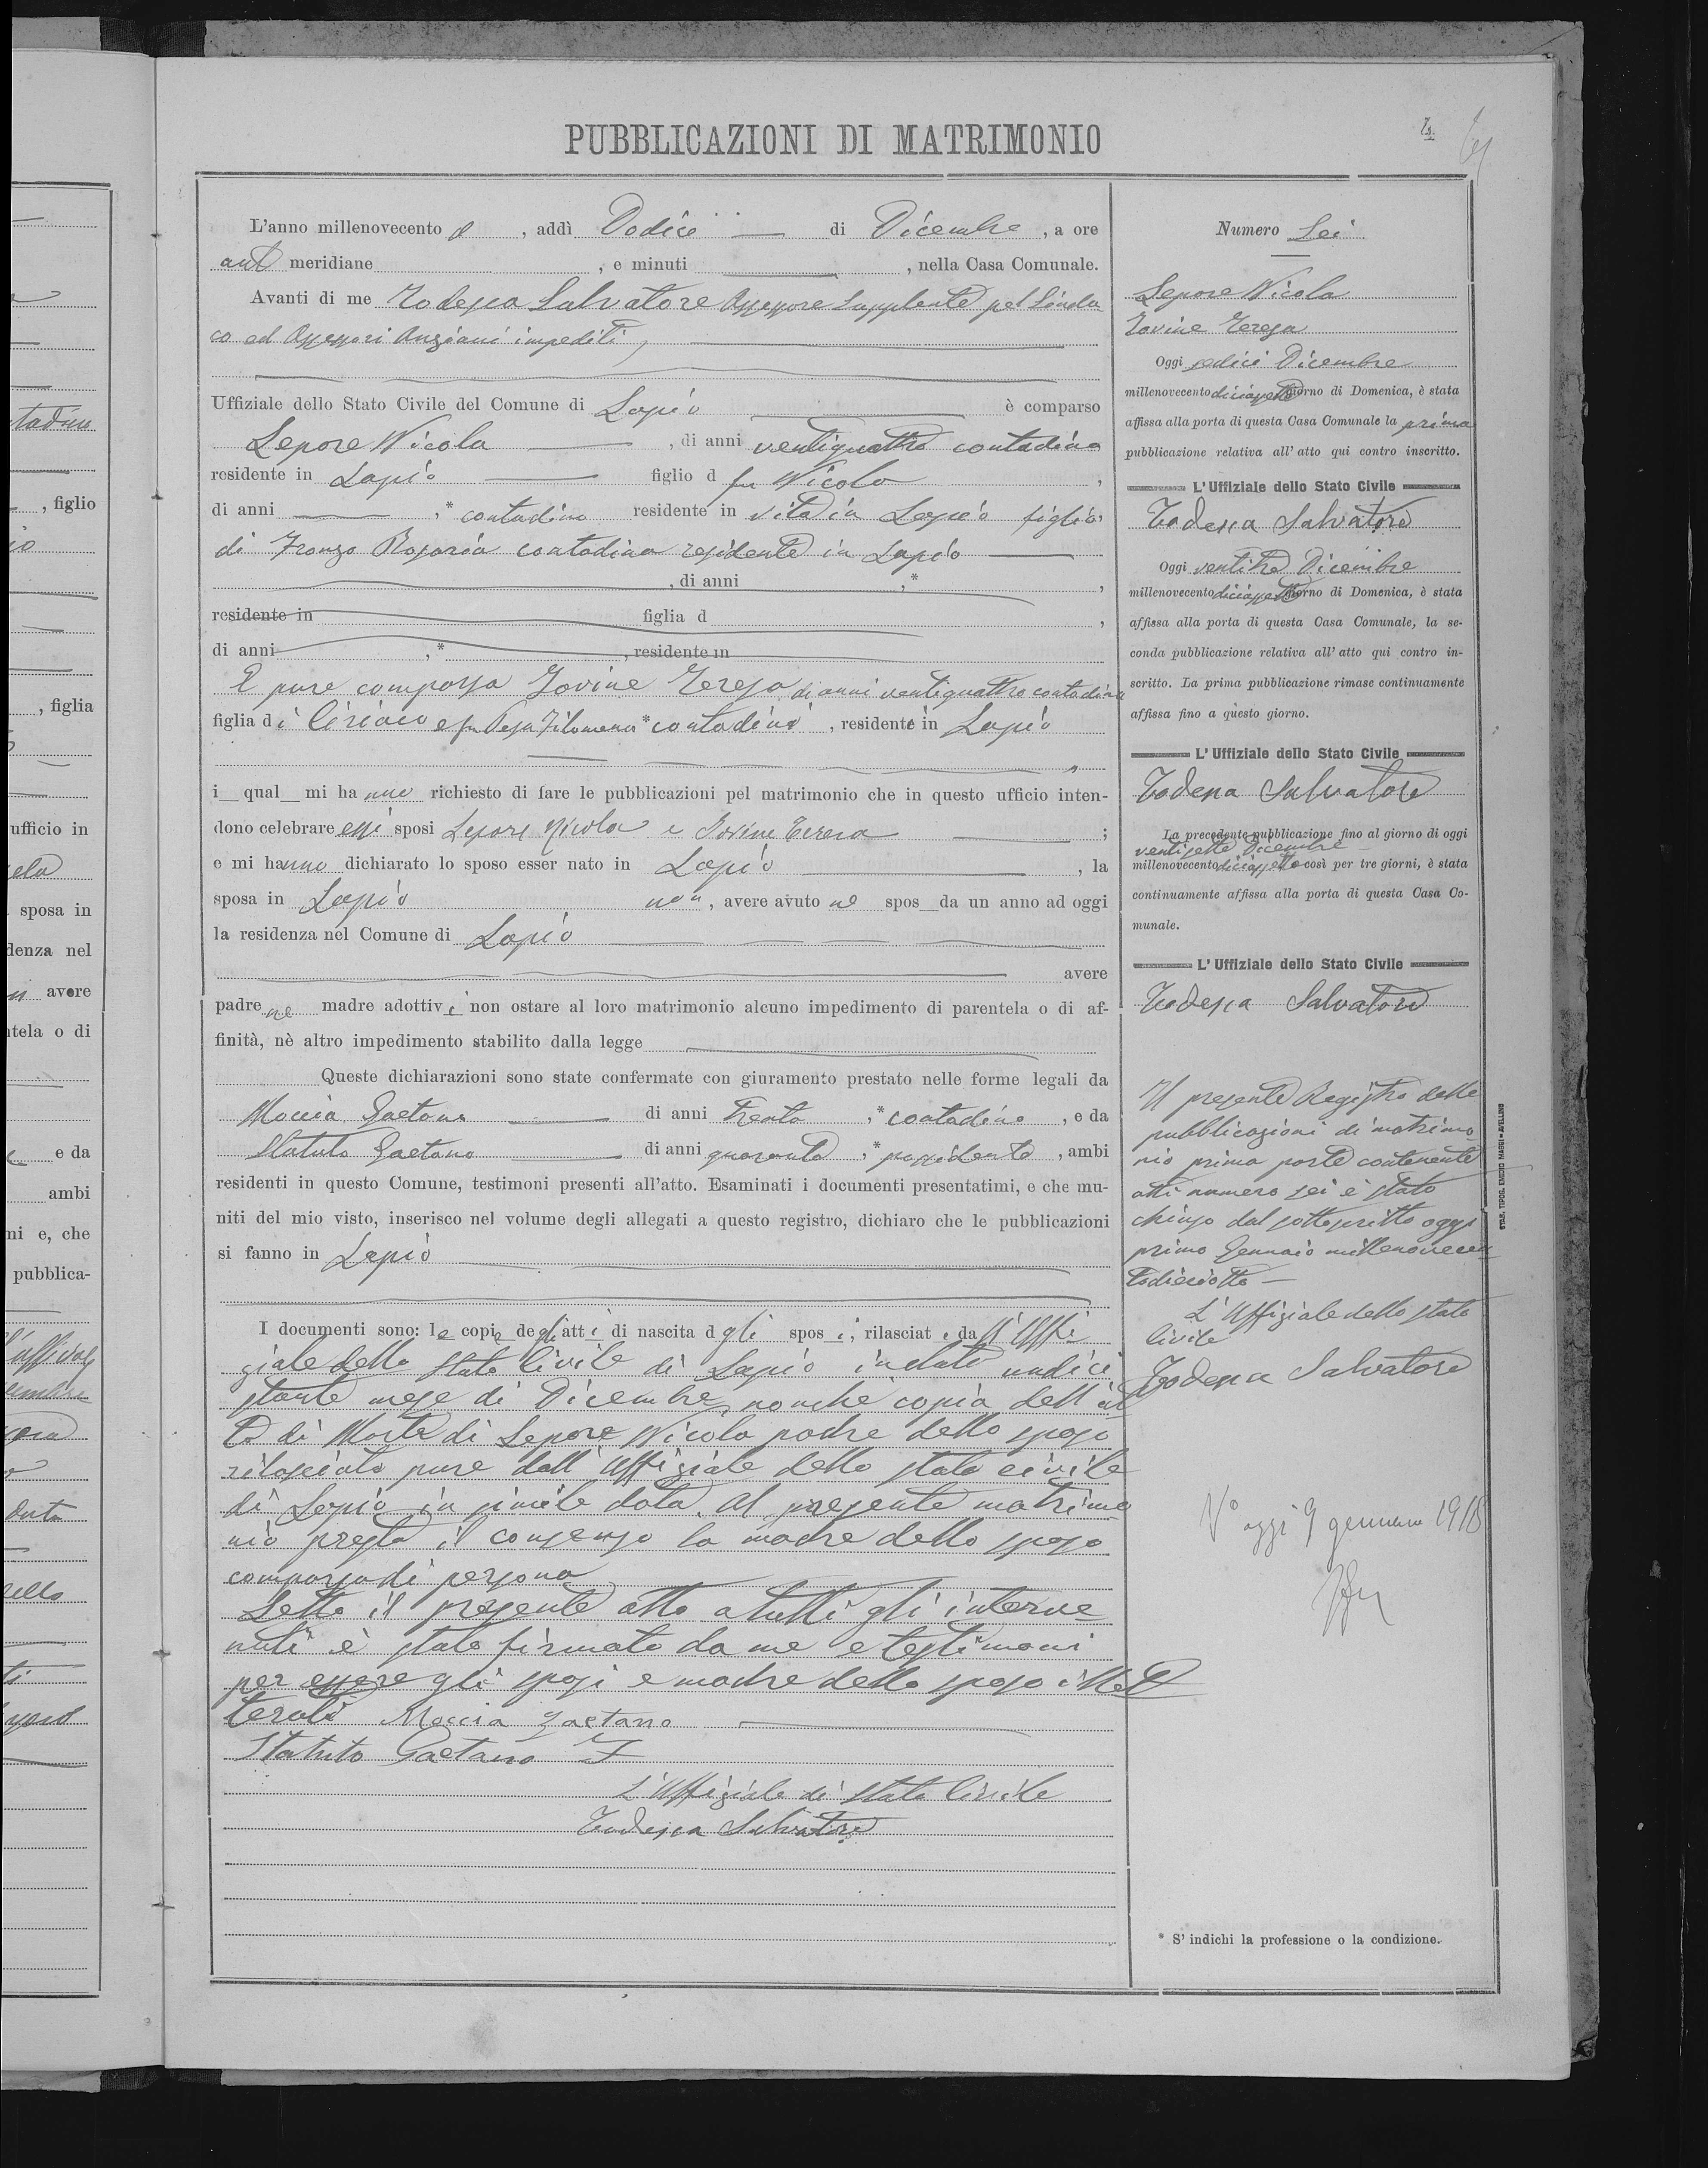 PUBBLICAZIONI DI MATRIMONIO
4
L'anno millenovecento , addì Dodici di Dicembre , a ore
ant meridiane , e minuti , nella Casa Comunale.
Avanti di me Todesca Salvatore Assessore Supplente pel Sinda
co ed Assessori Anziani impediti,
Uffiziale dello Stato Civile del Comune di Lapio è comparso
Lepore Nicola , di anni ventiquattro contadino
residente in Lapio figlio d fu Nicola ,
di anni , * contadino residente in vita in Lapio figlio
di Fronzo Rosaria contadina residente in Lapio
, di anni , * ,
residente in figlia d ,
di anni , * , residente in
E pure comparsa Iovine Teresa di anni ventiquattro contadina
figlia di Ciriaco e fu Filomena * contadini , residente in Lapio
i qual mi hanno richiesto di fare le pubblicazioni pel matrimonio che in questo ufficio inten-
dono celebrare essi sposi Lepore Nicola e Iovine Teresa ;
e mi hanno dichiarato lo sposo esser nato in Lapio , la
sposa in Lapio non , avere avuto ne spos da un anno ad oggi
la residenza nel Comune di Lapio
avere
padre ne madre adottivi non ostare al loro matrimonio alcuno impedimento di parentela o di af-
finità, nè altro impedimento stabilito dalla legge
Queste dichiarazioni sono state confermate con giuramento prestato nelle forme legali da
Moccia Gaetano di anni trenta , * contadino , e da
Statuto Gaetano di anni quaranta , * possidente , ambi
residenti in questo Comune, testimoni presenti all'atto. Esaminati i documenti presentatimi, e che mu-
niti del mio visto, inserisco nel volume degli allegati a questo registro, dichiaro che le pubblicazioni
si fanno in Lapio
I documenti sono: le copie degli atti di nascita dgli sposi, rilasciate da ll'Uffi
ziale dello Stato Civile di Lapio in data undici
stante mese di Dicembre, nonché copia dell'at
to di Morte di Lepore Nicola padre dello sposo
rilasciata pure dall'Uffiziale dello stato civile
di Lapio in simile data. Al presente matrimo
nio presta il consenso la madre dello sposo
comparsa di persona
Letto il presente atto a tutti gli interve
nuti è stato firmato da me e testimoni
per essere gli sposi e madre dello sposo illet
terati Moccia Gaetano
Statuto Gaetano F
L'Uffiziale di Stato Civile
Todesca Salvatore
Numero Sei
Lepore Nicola
Iovine Teresa
Oggi sedici Dicembre
millenovecento diciassette giorno di Domenica, è stata
affissa alla porta di questa Casa Comunale la prima
pubblicazione relativa all'atto qui contro inscritto.
L'Uffiziale dello Stato Civile
Todesca Salvatore
Oggi ventitre Dicembre
millenovecento diciassette giorno di Domenica, è stata
affissa alla porta di questa Casa Comunale, la se-
conda pubblicazione relativa all'atto qui contro in-
scritto. La prima pubblicazione rimase continuamente
affissa fino a questo giorno.
L'Uffiziale dello Stato Civile
Todesca Salvatore
La precedente pubblicazione fino al giorno di oggi
ventisette Dicembre
millenovecento diciassette così per tre giorni, è stata
continuamente affissa alla porta di questa Casa Co-
munale.
L'Uffiziale dello Stato Civile
Todesca Salvatore
Il presente Registro delle
pubblicazioni di matrimo
nio prima parte contenente
atti numero sei è stato
chiuso dal sottoscritto oggi
primo Gennaio millenovecen
todiciotto
L'Uffiziale dello Stato
Civile
Todesca Salvatore
V° oggi 9 gennaio 1918
* S'indichi la professione o la condizione.
, figlio
, figlia
ufficio in
sposa in
denza nel
avere
ntela o di
e da
ambi
ni e, che
pubblica-